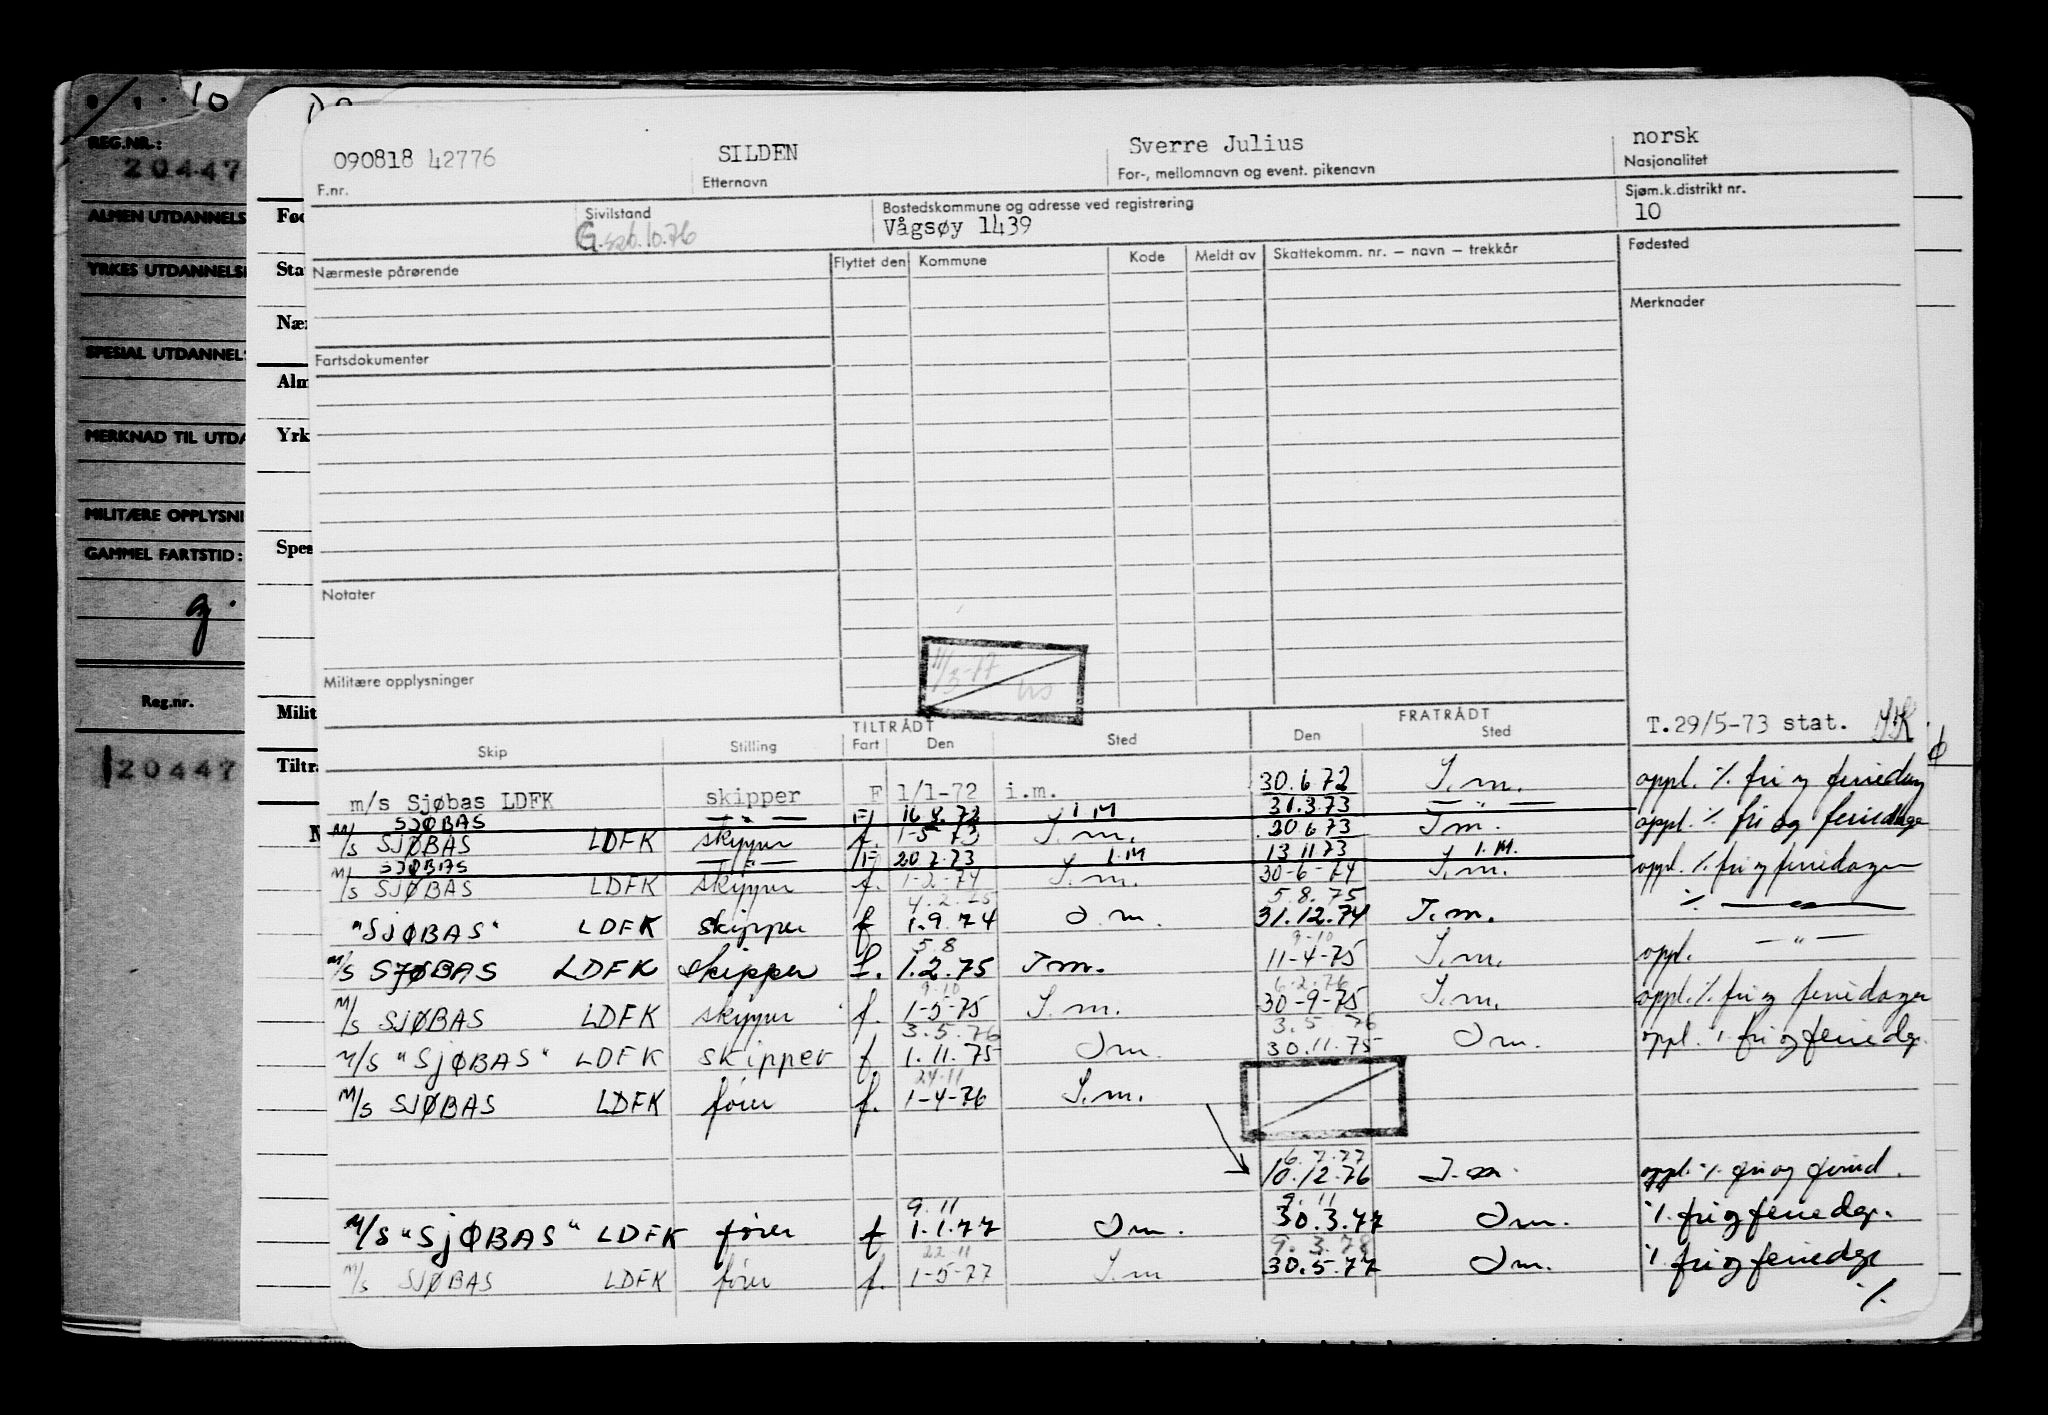 REG.NR.:
20447
ALMEN UTDANNELS
YRKES UTDANNELS
SPESIAL UTDANNEL
MERKNAD TIL UTDA
MILITÆRE OPPLYSNI
GAMMEL FARTSTID:
Reg.nr.
20447
Fød
Sta
Nær
Alm
Yrk
Spes
Milit
Tiltr
090818 42776 SILDEN Sverre Julius norsk
F.nr. Etternavn For-, mellomnavn og event. pikenavn Nasjonalitet
Sivilstand Bostedskommune og adresse ved registrering Sjøm.k.distrikt nr.
G. sept. 10.76 Vågsøy 1439 10
Nærmeste pårørende Flyttet den Kommune Kode Meldt av Skattekomm. nr. – navn – trekkår Fødested
Merknader
Fartsdokumenter
Notater
Militære opplysninger
11/3-77
TILTRÅDT FRATRÅDT T.29/5-73 stat.
Skip Stilling Fart Den Sted Den Sted
m/s Sjøbas LDFK skipper F 1/1-72 i.m. 30.6 72 I.m. oppl. % fri og feriedag
SJØBAS — " — F 1 M 31.3.73 — " —
M/S SJØBAS LDFK skipper f. 1-5-73 I.m. 20 6 73 I m. oppl. % fri og feriedage
SJØBAS — " — F 20 7.73 I.M 13 11 73 I.M.
M/S SJØBAS LDFK skipper f. 1-2-74 I.m. 30-6-74 I.m. oppl. % fri og feriedager
4.2.75 5.8.75
"SJØBAS" LDFK skipper f 1.9.74 I.m. 31.12.74 I.m. %
5.8 9-10
M/S SJØBAS LDFK skipper f. 1.2.75 I m. 11-4-75 I.m. oppl. — " —
9-10 6.2.76
M/S SJØBAS LDFK skipper f. 1-5-75 I.m. 30-9-75 I.m. oppl. % fri og feriedager
3.5.76 3.5.76
M/S "SJØBAS" LDFK skipper f 1.11.75 I m. 30.11.75 I m. oppl. % fri og feriedgr.
24-11
M/S SJØBAS LDFK fører f. 1-4-76 I.m.
6.7.77
10.12.76 I.m. oppl. % fri og feried.
9.11 9.11
M/S "SJØBAS" LDFK fører f 1.1.77 I m. 30.3.77 I m. % fri og feriedgr.
22-11 9.3.78
M/S SJØBAS LDFK fører f. 1-5-77 I.m 30.5.77 I m. % fri og feriedgr
%